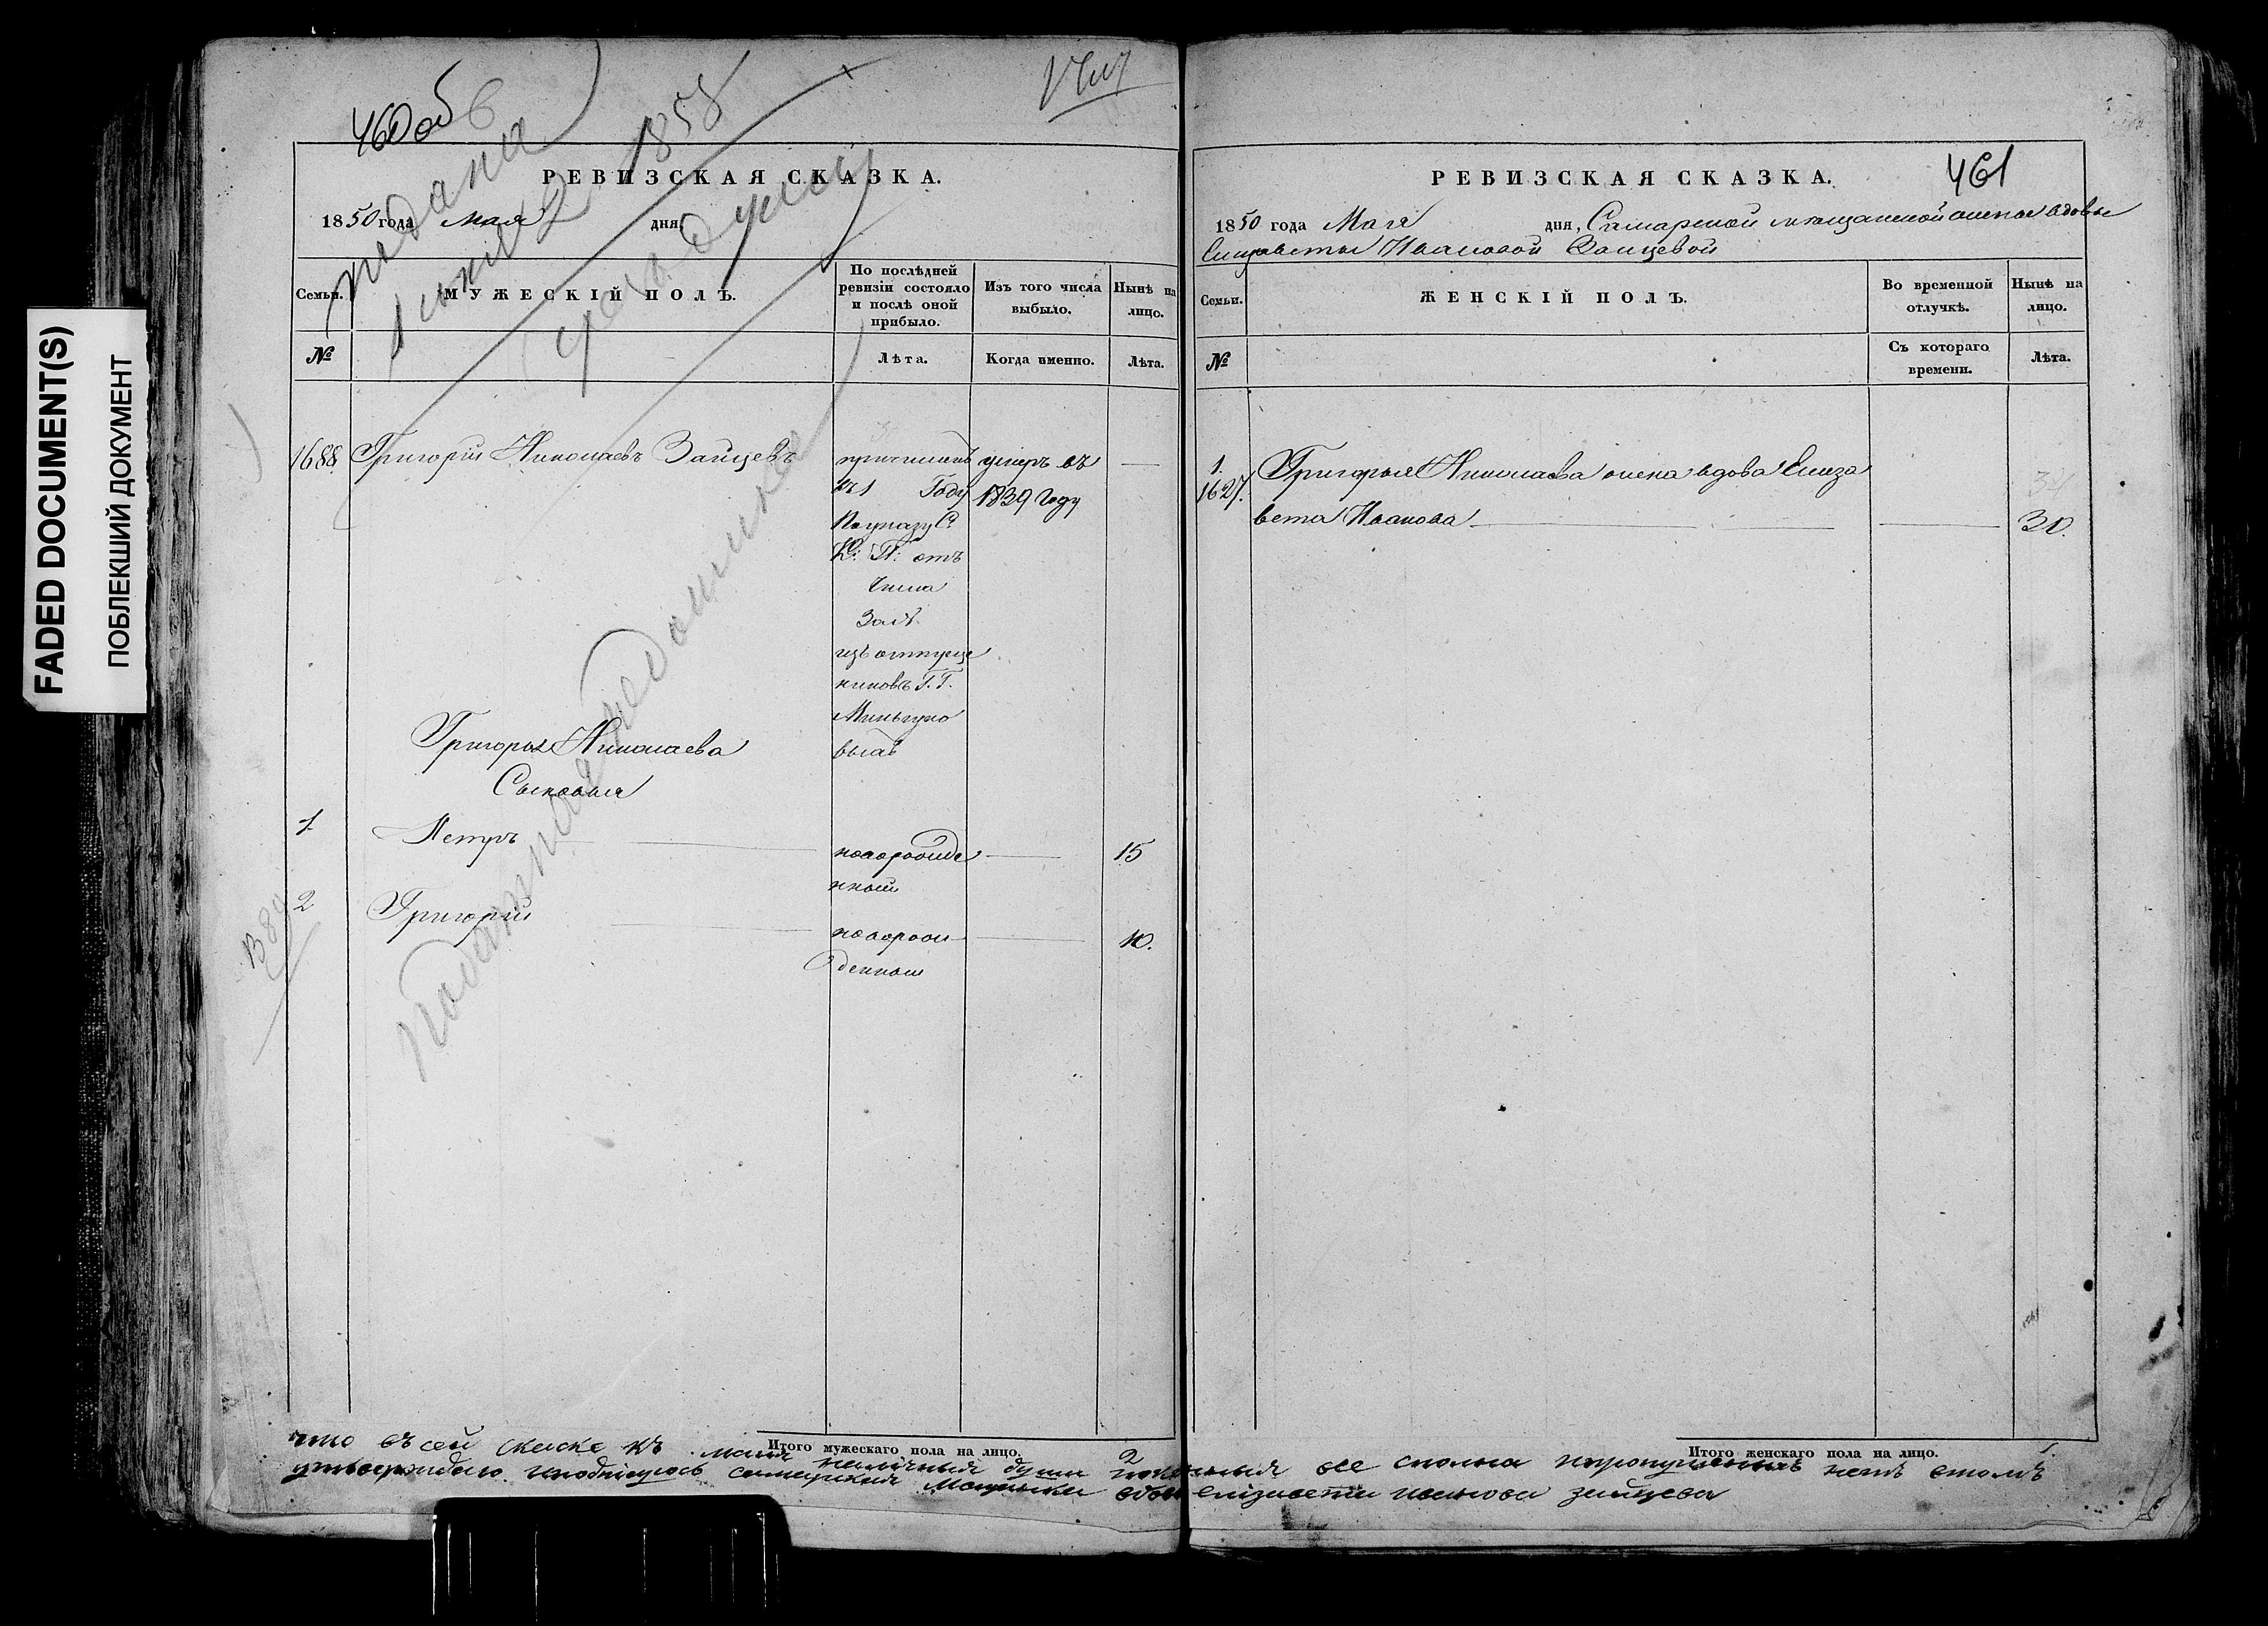 FADED DOCUMENT(S)
ПОБЛЕКШИЙ ДОКУМЕНТ
460 об
подана
1858
РЕВИЗСКАЯ СКАЗКА.
1850 года мая дня,
Семьи.
МУЖЕСКІЙ ПОЛЪ.
По послѣдней ревизіи состояло и послѣ оной прибыло.
Изъ того числа выбыло.
Нынѣ на лицо.
№
Лѣта.
Когда именно.
Лѣта.
1688 Григорій Николаевъ Зайцевъ
причисленъ умеръ въ
Году 1839 Году
По указу С
К: П: отъ
Числа
За №
изъ отпуще
никовъ Г. Г.
выхъ
Григорья Николаева
Сыновья
1. Петръ новорожде 15
нный
2 Григорій новорож 10.
денный
Податной недоимка
Итого мужескаго пола на лицо. 2
461
РЕВИЗСКАЯ СКАЗКА.
1850 года Мая дня, Самарской мѣщанской жены вдовы
Елизаветы Ивановой Зайцевой
Семьи.
ЖЕНСКІЙ ПОЛЪ.
Во временной отлучкѣ.
Нынѣ на лицо.
№
Съ котораго времени.
Лѣта.
1.
1627. Григорья Николаева жена вдова Елиза
вета Иванова 30.
Итого женскаго пола на лицо. 1
что въ сей скаске къ наличныя души показаныя все сполна пропущенныхъ нетъ втомъ
утверждаю иподписуюсь самарская мещанка вдова елизавети иванова зайцева